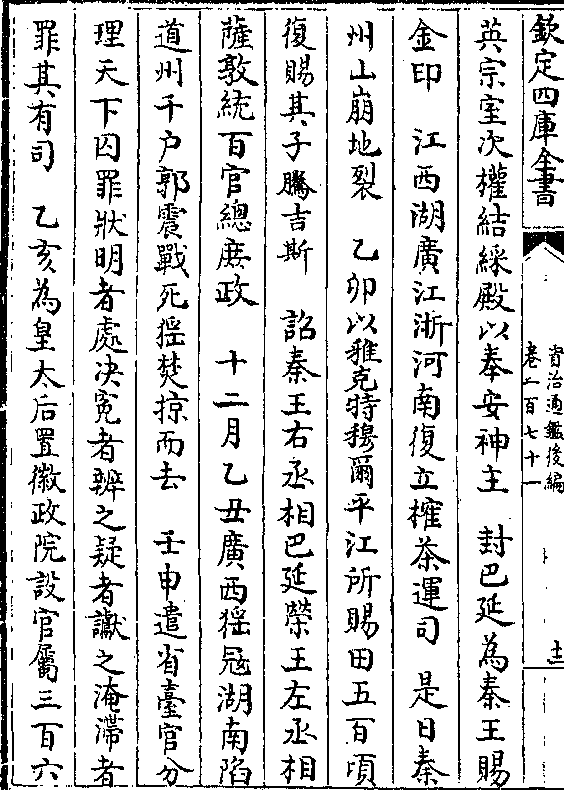 欽定四庫全書
資治通鑑後編
卷一百七十一
十二
英宗室次權結綵殿以奉安神主　封巴延為秦王賜
金印　江西湖廣江浙河南復立榷茶運司　是日秦
州山崩地裂　乙卯以雅克特穆爾平江所賜田五百頃
復賜其子騰吉斯　詔秦王右丞相巴延榮王左丞相
薩敦統百官總庶政　十二月乙丑廣西猺冦湖南陷
道州千户郭震戰死猺焚掠而去　壬申遣省臺官分
理天下囚罪狀明者處决寃者辨之疑者讞之淹滯者
罪其有司　乙亥為皇太后置徽政院設官屬三百六